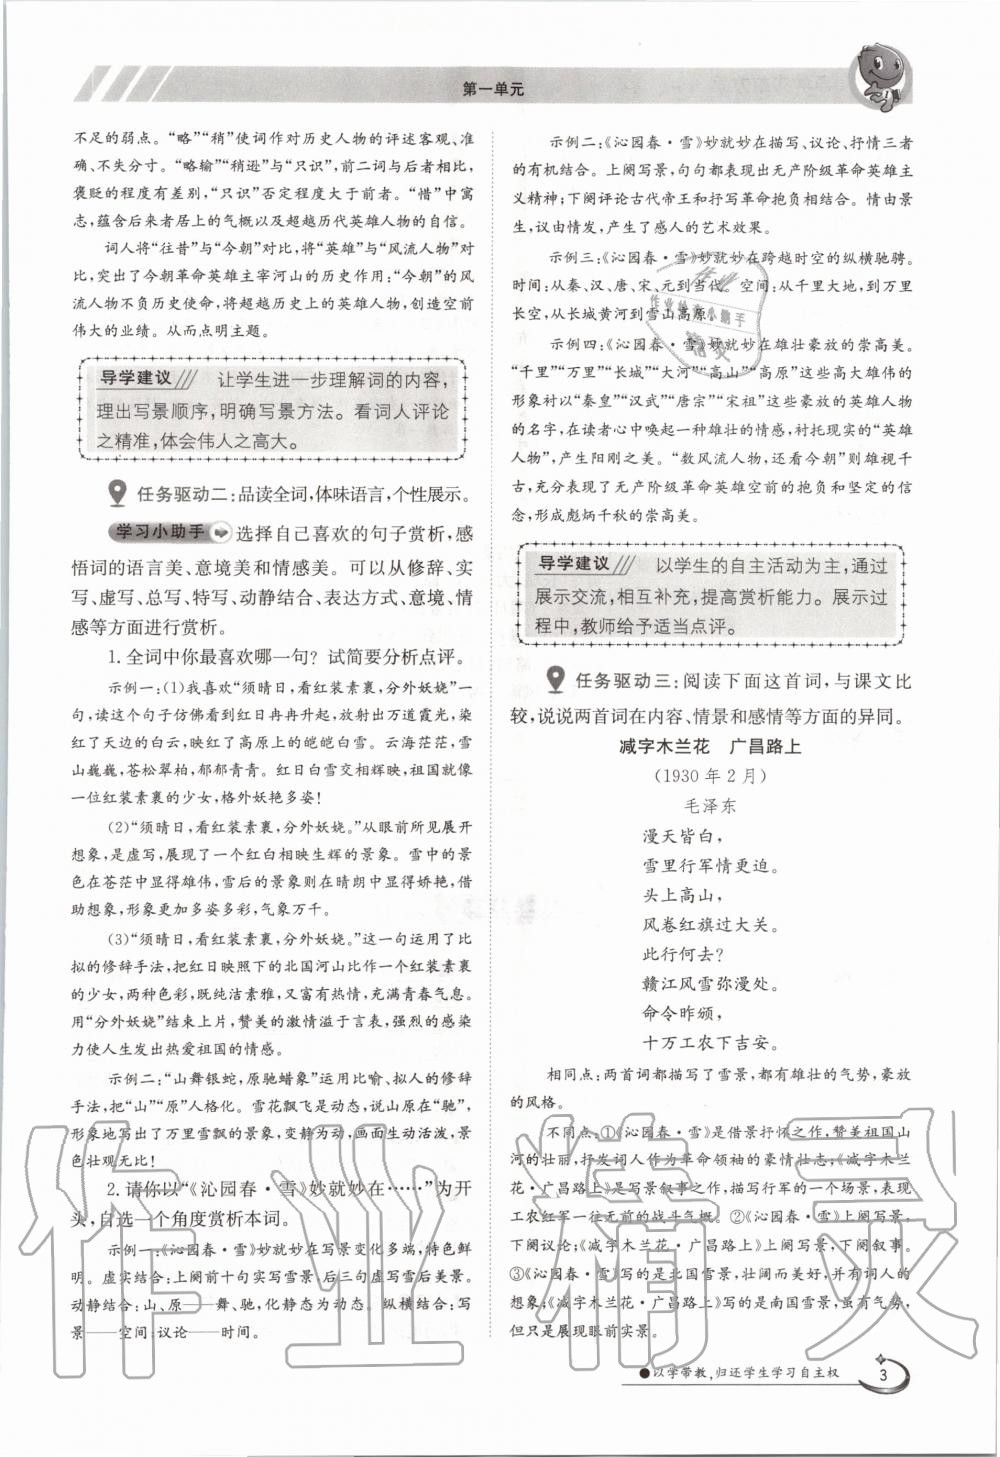 第一单元
不足的弱点。“略”“稍”使词作对历史人物的评述客观、准
确、不失分寸。“略输”“稍逊”与“只识”,前二词与后者相比,
褒贬的程度有差别,“只识”否定程度大于前者。“惜”中寓
志,蕴含后来者居上的气概以及超越历代英雄人物的自信。
词人将“往昔”与“今朝”对比,将“英雄”与“风流人物”对
比,突出了今朝革命英雄主宰河山的历史作用:“今朝”的风
流人物不负历史使命,将超越历史上的英雄人物,创造空前
伟大的业绩。从而点明主题。
导学建议 让学生进一步理解词的内容,
理出写景顺序,明确写景方法。看词人评论
之精准,体会伟人之高大。
任务驱动二:品读全词,体味语言,个性展示。
学习小助手 选择自己喜欢的句子赏析,感
悟词的语言美、意境美和情感美。可以从修辞、实
写、虚写、总写、特写、动静结合、表达方式、意境、情
感等方面进行赏析。
1.全词中你最喜欢哪一句? 试简要分析点评。
示例一:(1)我喜欢“须晴日,看红装素裹,分外妖娆”一
句,读这个句子仿佛看到红日冉冉升起,放射出万道霞光,染
红了天边的白云,映红了高原上的皑皑白雪。云海茫茫,雪
山巍巍,苍松翠柏,郁郁青青。红日白雪交相辉映,祖国就像
一位红装素裹的少女,格外妖艳多姿!
(2)“须晴日,看红装素裹,分外妖娆。”从眼前所见展开
想象,是虚写,展现了一个红白相映生辉的景象。雪中的景
色在苍茫中显得雄伟,雪后的景象则在晴朗中显得娇艳,借
助想象,形象更加多姿多彩,气象万千。
(3)“须晴日,看红装素裹,分外妖娆。”这一句运用了比
拟的修辞手法,把红日映照下的北国河山比作一个红装素裹
的少女,两种色彩,既纯洁素雅,又富有热情,充满青春气息。
用“分外妖娆”结束上片,赞美的激情溢于言表,强烈的感染
力使人生发出热爱祖国的情感。
示例二:“山舞银蛇,原驰蜡象”运用比喻、拟人的修辞
手法,把“山”“原”人格化。雪花飘飞是动态,说山原在“驰”,
形象地写出了万里雪飘的景象,变静为动,画面生动活泼,景
色壮观无比!
2.请你以“《沁园春·雪》妙就妙在……”为开
头,自选一个角度赏析本词。
示例一:《沁园春·雪》妙就妙在写景变化多端,特色鲜
明。虚实结合:上阕前十句实写雪景,后三句虚写雪后美景。
动静结合:山、原——舞、驰,化静态为动态。纵横结合:写
景——空间;议论——时间。
示例二:《沁园春·雪》妙就妙在描写、议论、抒情三者
的有机结合。上阕写景,句句都表现出无产阶级革命英雄主
义精神;下阕评论古代帝王和抒写革命抱负相结合。情由景
生,议由情发,产生了感人的艺术效果。
示例三:《沁园春·雪》妙就妙在跨越时空的纵横驰骋。
时间:从秦、汉、唐、宋、元到当代。空间:从千里大地,到万里
长空,从长城黄河到雪山高原。
示例四:《沁园春·雪》妙就妙在雄壮豪放的崇高美。
“千里”“万里”“长城”“大河”“高山”“高原”这些高大雄伟的
形象衬以“秦皇”“汉武”“唐宗”“宋祖”这些豪放的英雄人物
的名字,在读者心中唤起一种雄壮的情感,衬托现实的“英雄
人物”,产生阳刚之美。“数风流人物,还看今朝”则雄视千
古,充分表现了无产阶级革命英雄空前的抱负和坚定的信
念,形成彪炳千秋的崇高美。
导学建议 以学生的自主活动为主,通过
展示交流,相互补充,提高赏析能力。展示过
程中,教师给予适当点评。
任务驱动三:阅读下面这首词,与课文比
较,说说两首词在内容、情景和感情等方面的异同。
减字木兰花 广昌路上
(1930年2月)
毛泽东
漫天皆白,
雪里行军情更迫。
头上高山,
风卷红旗过大关。
此行何去?
赣江风雪弥漫处。
命令昨颁,
十万工农下吉安。
相同点:两首词都描写了雪景,都有雄壮的气势,豪放
的风格。
不同点:①《沁园春·雪》是借景抒怀之作,赞美祖国山
河的壮丽,抒发词人作为革命领袖的豪情壮志;《减字木兰
花·广昌路上》是写景叙事之作,描写行军的一个场景,表现
工农红军一往无前的战斗气概。②《沁园春·雪》上阕写景,
下阕议论;《减字木兰花·广昌路上》上阕写景,下阕叙事。
③《沁园春·雪》写的是北国雪景,壮阔而美好,并有词人的
想象;《减字木兰花·广昌路上》写的是南国雪景,虽有气势,
但只是展现眼前实景。
●以学带教,归还学生学习自主权
3
作业精灵